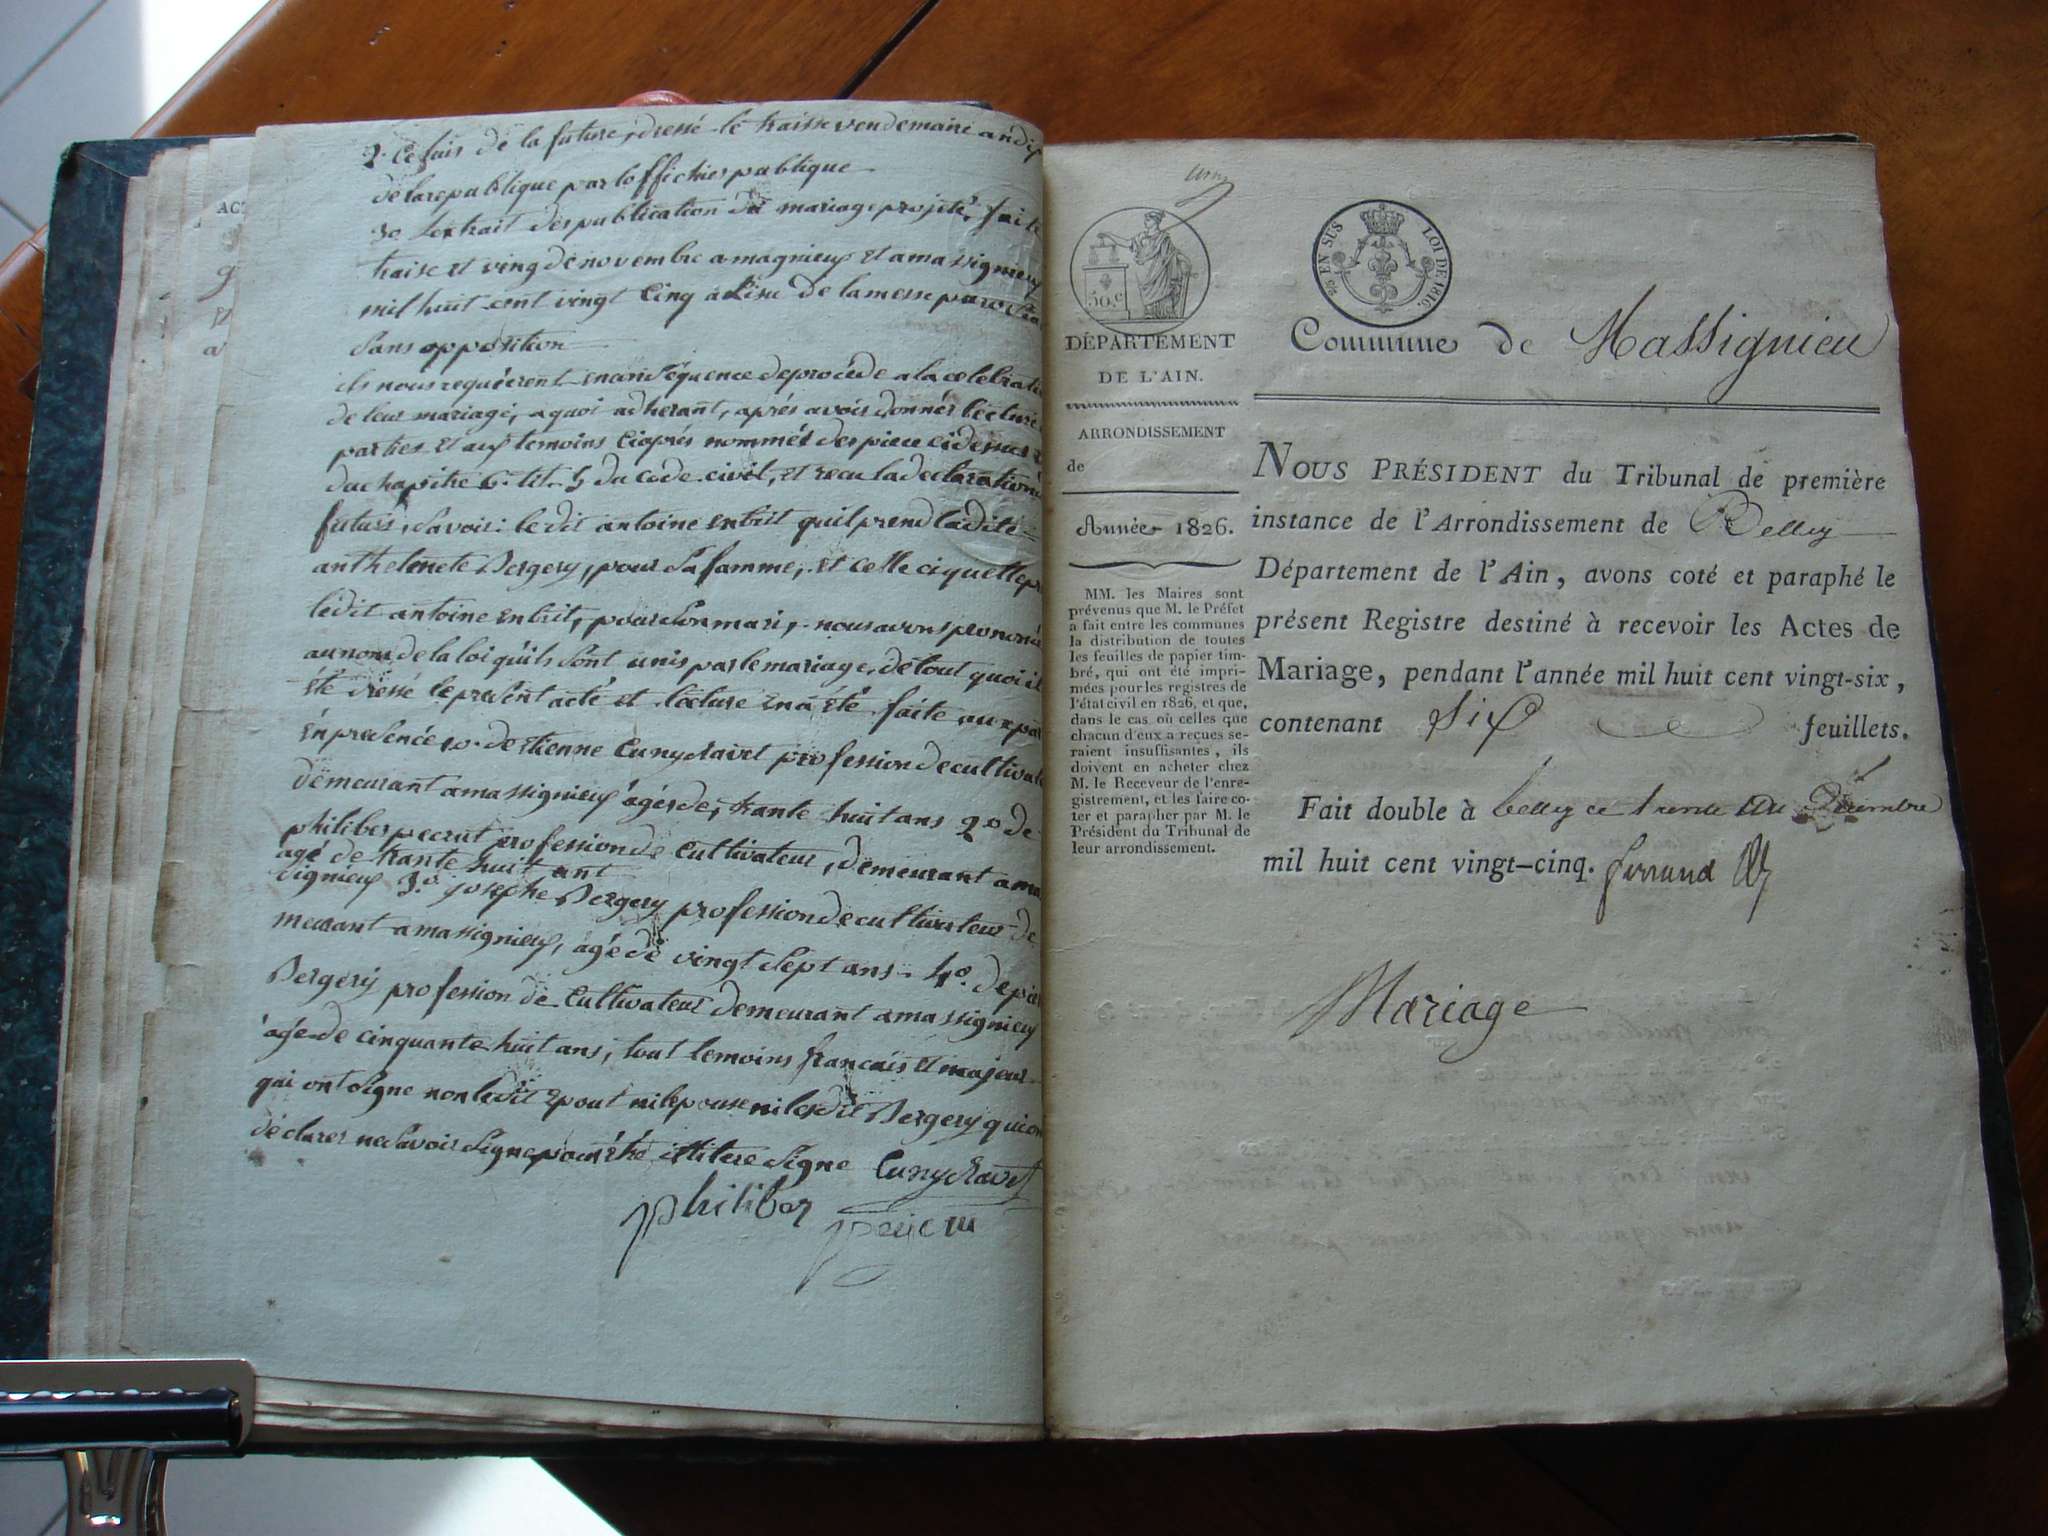 2. Celuis de la future, dressé le traisse vendemaire an dix
de la republique par lofficher publique
3o Lextrait des publication du mariage projeté, faite
traise et vingt de novembre a magnieux et a massignieux
mil huit cent vingt cinq a lisue de la messe parociale
sans opposition
ils nous requierent en conséquence de procede a la celebration
de leur mariage, a quoi adherant, aprés avoir donnés lecture
parties et aux temoins ciaprés nommés des piece cidessus
du chapitre 6. tit. 5 du code civil, et recu la declaration
futurs, savoir: le dit antoine quil prend ladite
anthelmete Bergery, pour sa famme, et celle ci quelle
ledit antoine pour son mari, nous avons prononcé
au nom de la loi quils sont unis par le mariage. de tout quoi il
été dressé le present acte et lecture en a été faite aux
en presence 1o. de etienne Cunychavet profession de cultivateur
demeurant a massignieux âgés de, trante huit ans 2o de
philiber profession de cultivateur, demeurant a
agé de trante huit ant
signieux 3o. josephe Bergery profession de cultivateur de
meurant a massignieux, âgé de vingt sept ans. 4o. de
Bergery profession de cultivateur demeurant a massignieux
âgé de cinquante huit ans, tout temoins francais et majeur
qui ont signe non ledit epout ni lepouse ni lesdit Bergery qui
déclarer ne savoir signe signe Cunychavet
philiber
AC
50.c
25 EN SUS LOI DE 1816.
DÉPARTEMENT
DE L'AIN.
Commune de Massignieu
ARRONDISSEMENT
de
Année 1826.
MM. les Maires sont
prévenus que M. le Préfet
a fait entre les communes
la distribution de toutes
les feuilles de papier tim-
bré, qui ont été impri-
mées pour les registres de
l'état civil en 1826, et que,
dans le cas où celles que
chacun d'eux a reçues se-
raient insuffisantes, ils
doivent en acheter chez
M. le Receveur de l'enre-
gistrement, et les faire co-
ter et parapher par M. le
Président du Tribunal de
leur arrondissement.
NOUS PRÉSIDENT du Tribunal de première
instance de l'Arrondissement de Belley
Département de l'Ain, avons coté et paraphé le
présent Registre destiné à recevoir les Actes de
Mariage, pendant l'année mil huit cent vingt-six,
contenant six feuillets.
Fait double à belley ce trente un Décembre
mil huit cent vingt-cinq.
Mariage